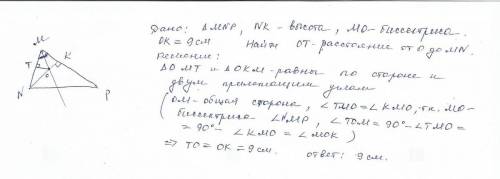 M
K
T
O
N
P
Дано: △MNP, NK - высота, MO - биссектриса.
OK = 9 см   Найти OT - расстояние от O до MN.
Решение:
△OMT и △OKM - равны по стороне и
двум прилежащим углам
(OM - общая сторона, ∠TMO = ∠KMO, т.к. MO -
биссектриса ∠NMP, ∠TOM = 90° - ∠TMO =
= 90° - ∠KMO = ∠MOK)
⇒ TO = OK = 9 см.   ответ: 9 см.